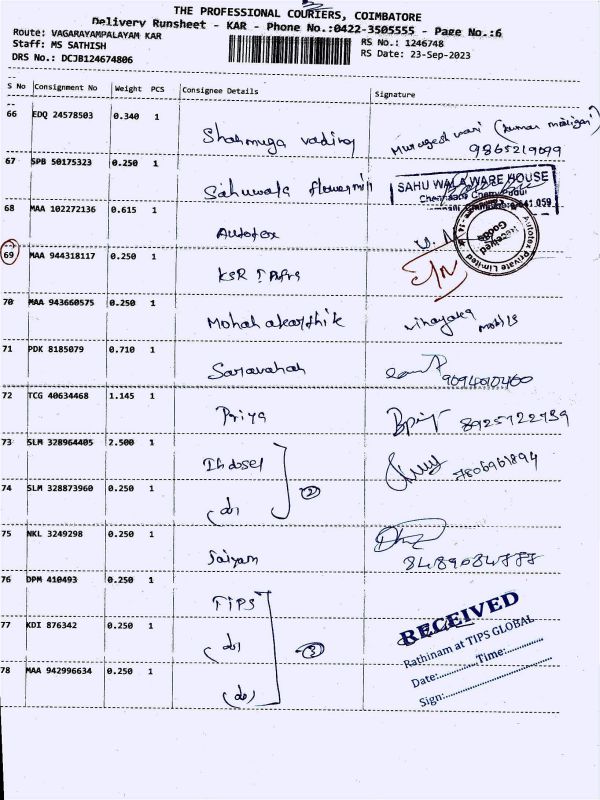 THE PROFESSIONAL COURIERS, COIMBATORE
Delivery Runsheet - KAR - Phone No.:0422-3505555 - Page No.:6
Route: VAGARAYAMPALAYAM KAR
Staff: MS SATHISH
DRS No.: DCJB124674806
RS No.: 1246748
RS Date: 23-Sep-2023
S No Consignment No Weight PCS Consignee Details Signature
66 EDQ 24578503 0.340 1
9865219099
67 SPB 50175323 0.250 1
SAHU WALA WARE HOUSE
641 059
68 MAA 102272136 0.615 1 Autotex
Autotex Private Limited
Received Goods
69 MAA 944318117 0.250 1 KSR
70 MAA 943660575 0.250 1 Vinayaka Mobils
71 PDK 8185079 0.710 1 Saravahah
72 TCG 40634468 1.145 1 Priya
73 SLM 328964405 2.500 1 Indosel
7806961894
74 SLM 328873960 0.250 1 (do) 2
75 NKL 3249298 0.250 1
76 DPM 410493 0.250 1 TIPS
77 KDI 876342 0.250 1 (do) 3
78 MAA 942996634 0.250 1 (do)
RECEIVED
Rathinam at TIPS GLOBAL
Date:............Time:............
Sign:............